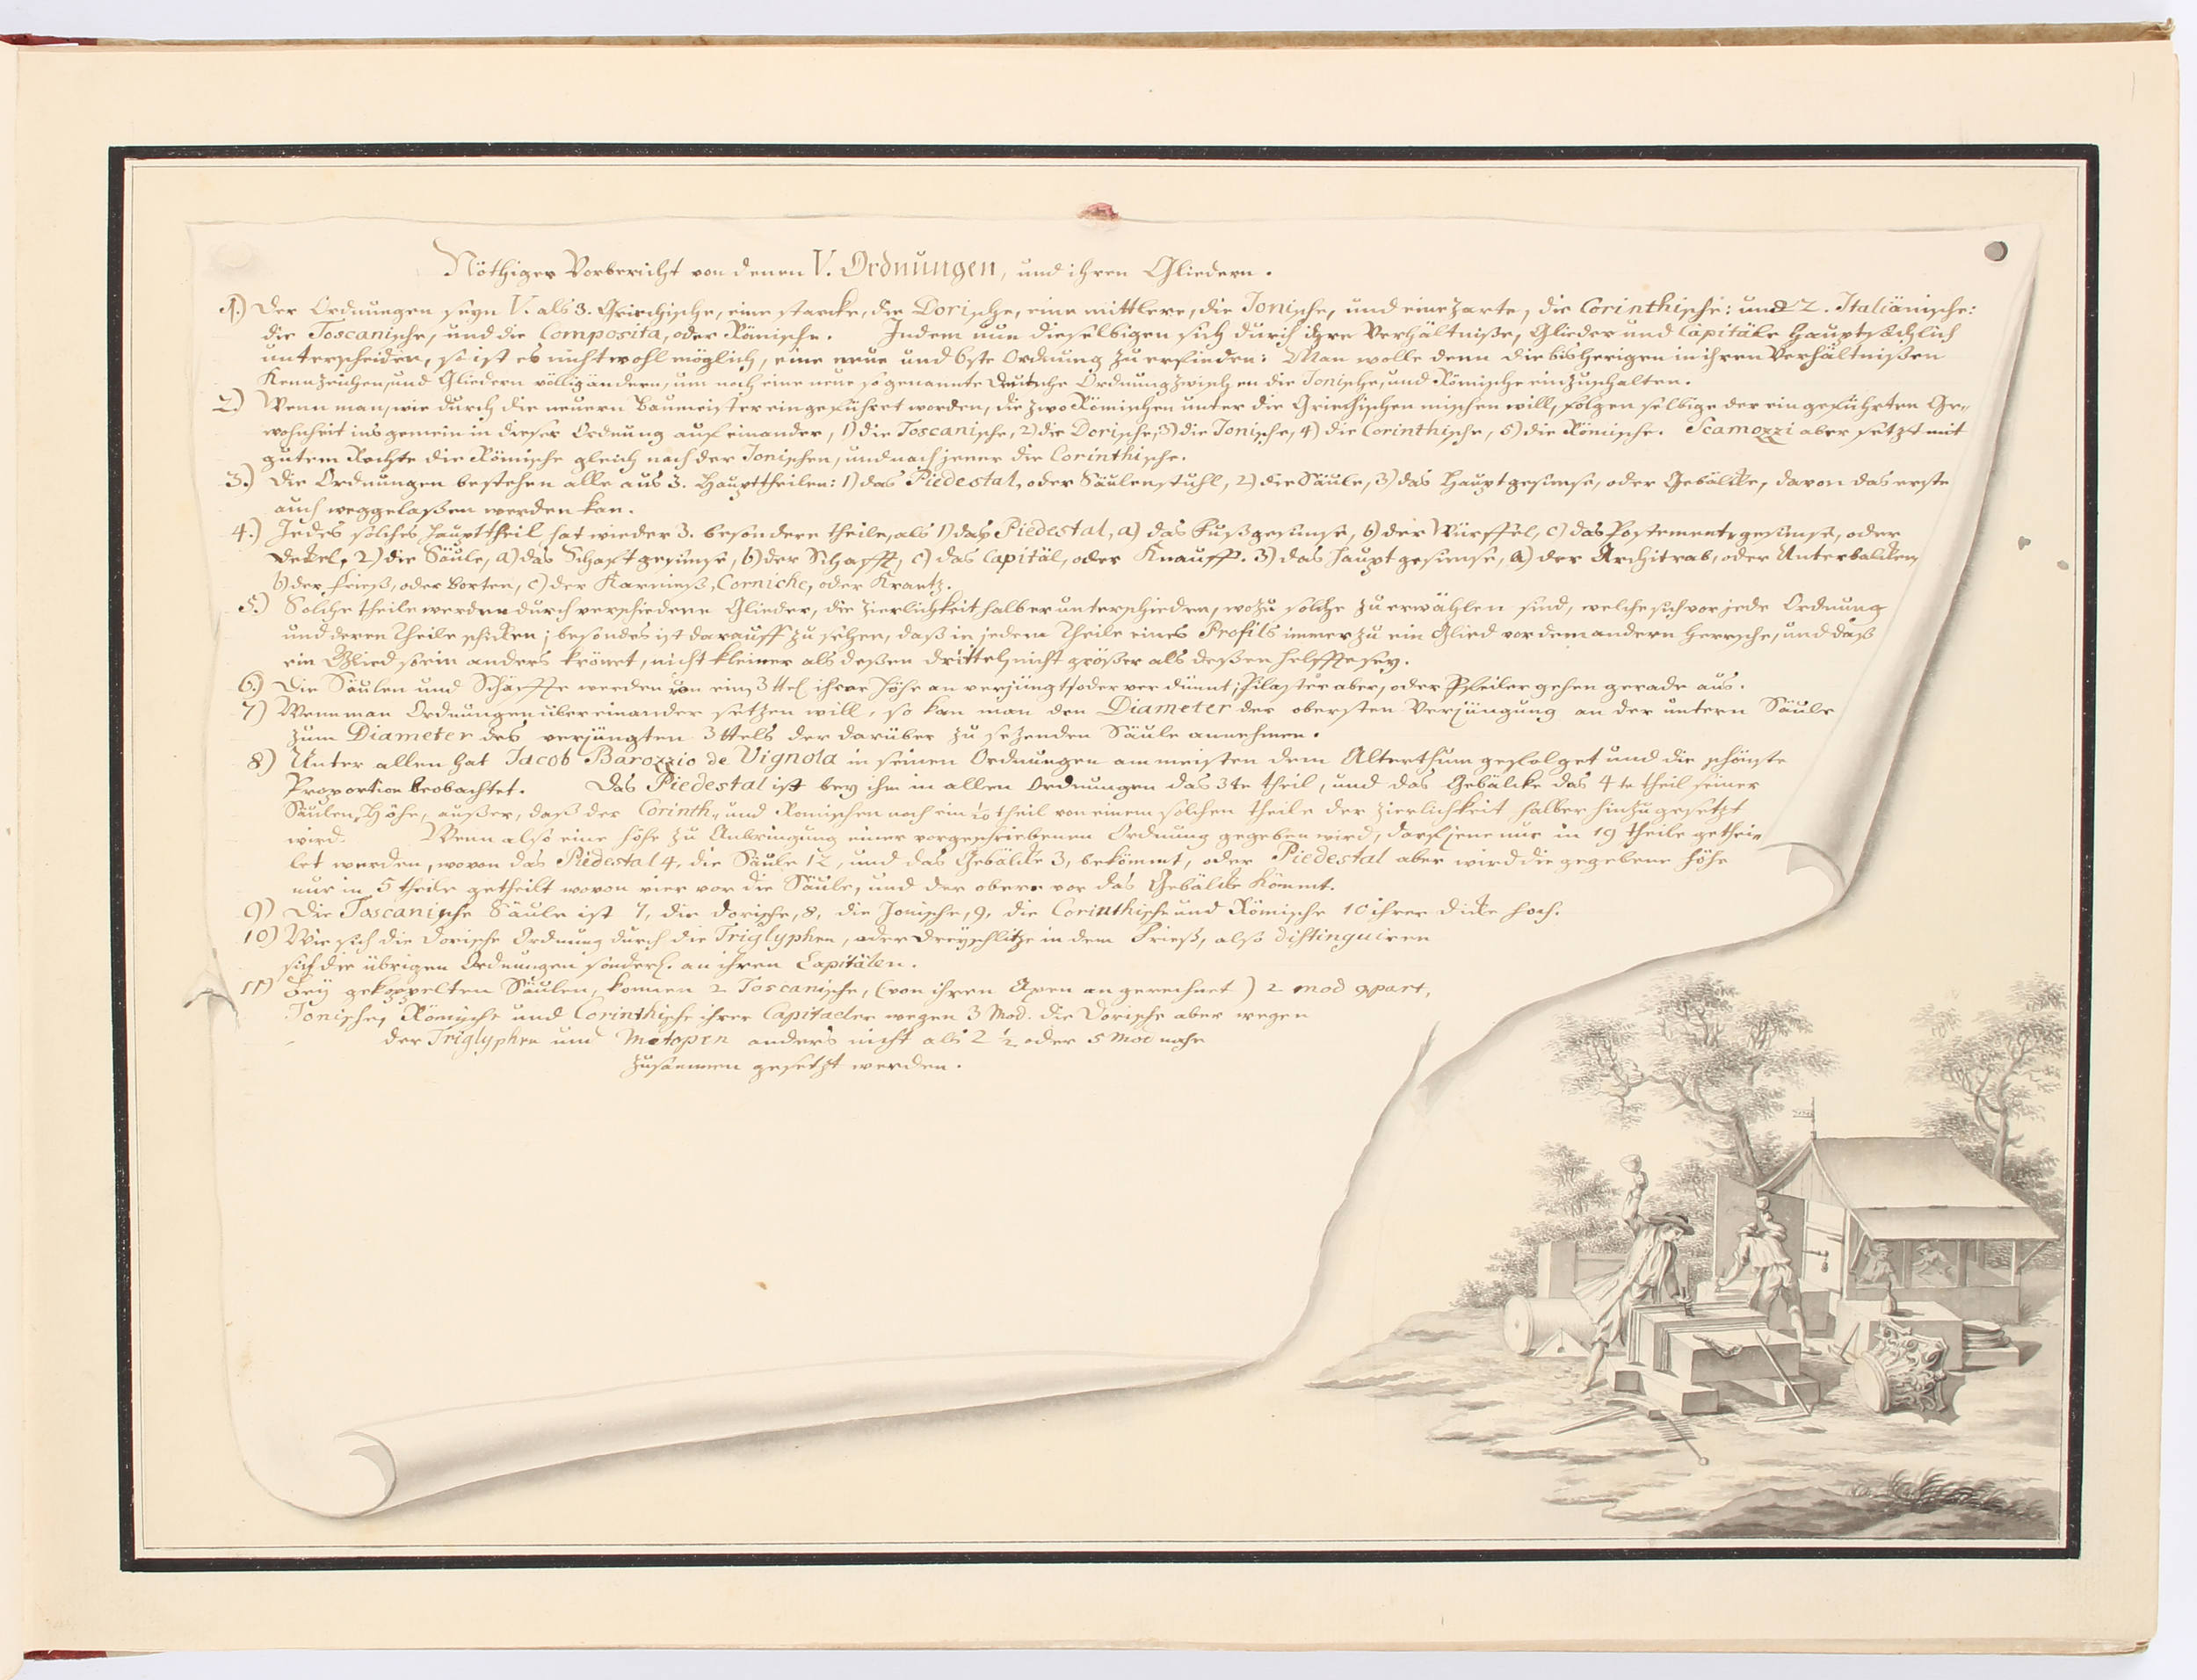 Nöthiger Vorbericht von denen V. Ordnungen, und ihren Gliedern.
1.) Der Ordnungen seyn V. als 3. Griechische, eine starcke, die Dorische, eine mittlere, die Jonische, und eine zarte, die Corinthische: und 2. Italiänische:
die Toscanische, und die Composita, oder Römische. Indem nun dieselbigen sich durch ihre Verhältniße, Glieder und Capitäle hauptsächlich
unterscheiden, so ist es nicht wohl möglich, eine neue und 6ste Ordnung zu erfinden: Man wolle denn die bisherigen in ihren Verhältnißen
Kennzeichen, und Gliedern völlig ändern, um noch eine neue so genannte Deutsche Ordnung zwischen die Jonische, und Römische einzuschalten.
2.) Wenn man, wie durch die neuern Baumeister eingeführet worden, die zwo Römischen unter die Griechischen mischen will, folgen selbige der eingeführten Ge„
wohnheit insgemein in dieser Ordnung auf einander, 1) die Toscanische, 2) die Dorische, 3) die Jonische, 4) die Corinthische, 5) die Römische. Scamozzi aber setzt mit
gutem Rechte die Römische gleich nach der Jonischen, und nach jener die Corinthische.
3.) Die Ordnungen bestehen alle aus 3. Haupttheilen: 1) das Piedestal, oder Säulenstuhl, 2) die Säule, 3) das Hauptgesimse, oder Gebälcke, davon das erste
auch weggelaßen werden kan.
4.) Jedes solches Haupttheil hat wieder 3. besondere theile, als 1) das Piedestal, a) das Fußgesimse, b) der Würffel, c) das Postementsgesimse, oder
Dekel, 2) die Säule, a) das Schaftgesimse, b) der Schafft, c) das Capitäl, oder Knauff. 3) das Hauptgesimse, a) der Architrab, oder Unterbalcken
b) der Frieß, oder Borten, c) der Karnieß, Corniche, oder Krantz.
5.) Solche theile werden durch verschiedene Glieder, die Zierlichkeit halber unterschieden, wozu solche zu erwählen sind, welche sich vor jede Ordnung
und deren Theile schicken; besondes ist darauff zu sehen, daß in jedem Theile eines Profils immerzu ein Glied vor dem andern herrsche, und daß
ein Glied so ein anders krönet, nicht kleiner als deßen drittel, nicht größer als deßen helffte sey.
6.) Die Säulen und Schäffte werden von einß ttel ihrer Höhe an verjüngt, oder verdünnt; Pilaster aber, oder Pfeiler gehen gerade aus.
7) Wenn man Ordnungen übereinander setzen will, so kan man den Diameter der obersten Verjüngung an der untern Säule
zum Diameter des verjüngten 3ttels der darüber zu sezenden Säule annehmen.
8) Unter allen hat Jacob Barozzio de Vignola in seinen Ordnungen am meisten dem Alterthum gefolget und die schönste
Proportion beobachtet. Das Piedestal ist bey ihm in allen Ordnungen das 3te theil, und das Gebälcke das 4te theil seiner
Säulen Höhe, außer, daß der Corinth„ und Romischen noch ein theil von einem solchen theile der zierlichkeit halber hinzugesetzt
wird. Wenn also eine Höhe zu Anbringung einer vorgeschriebenen Ordnung gegeben wird, darf jene nur in 19 theile gethei„
let werden, wovon das Piedestal 4, die Säule 12, und das Gebälcke 3, bekömmt, oder Piedestal aber wird die gegebene Höhe
nur in 5 theile getheilt wovon vier vor die Säule, und der obere vor das Gebälcke kömmt.
9) Die Toscanische Säule ist 7, die Dorische, 8, die Jonische, 9, die Corinthische und Römische 10 ihrer Dicke hoch.
10) Wie sich die Dorische Ordnung durch die Triglyphen, oder Dreyschlitze in dem Frieß, also distinguiren
sich die übrigen Ordnungen sonderl. an ihren Capitälen.
11) Bey gekoppelten Säulen, komen 2 Toscanische, (von ihren Axen an gerechnet) 2 mod 9 part,
Jonische, Römische und Corinthische ihrer Capitaeler wegen 3 Mod. die Dorische aber wegen
der Triglyphen und Metopen anders nicht als 2 1/2 oder 5 Mod nahe
zusammen gesetzt werden.